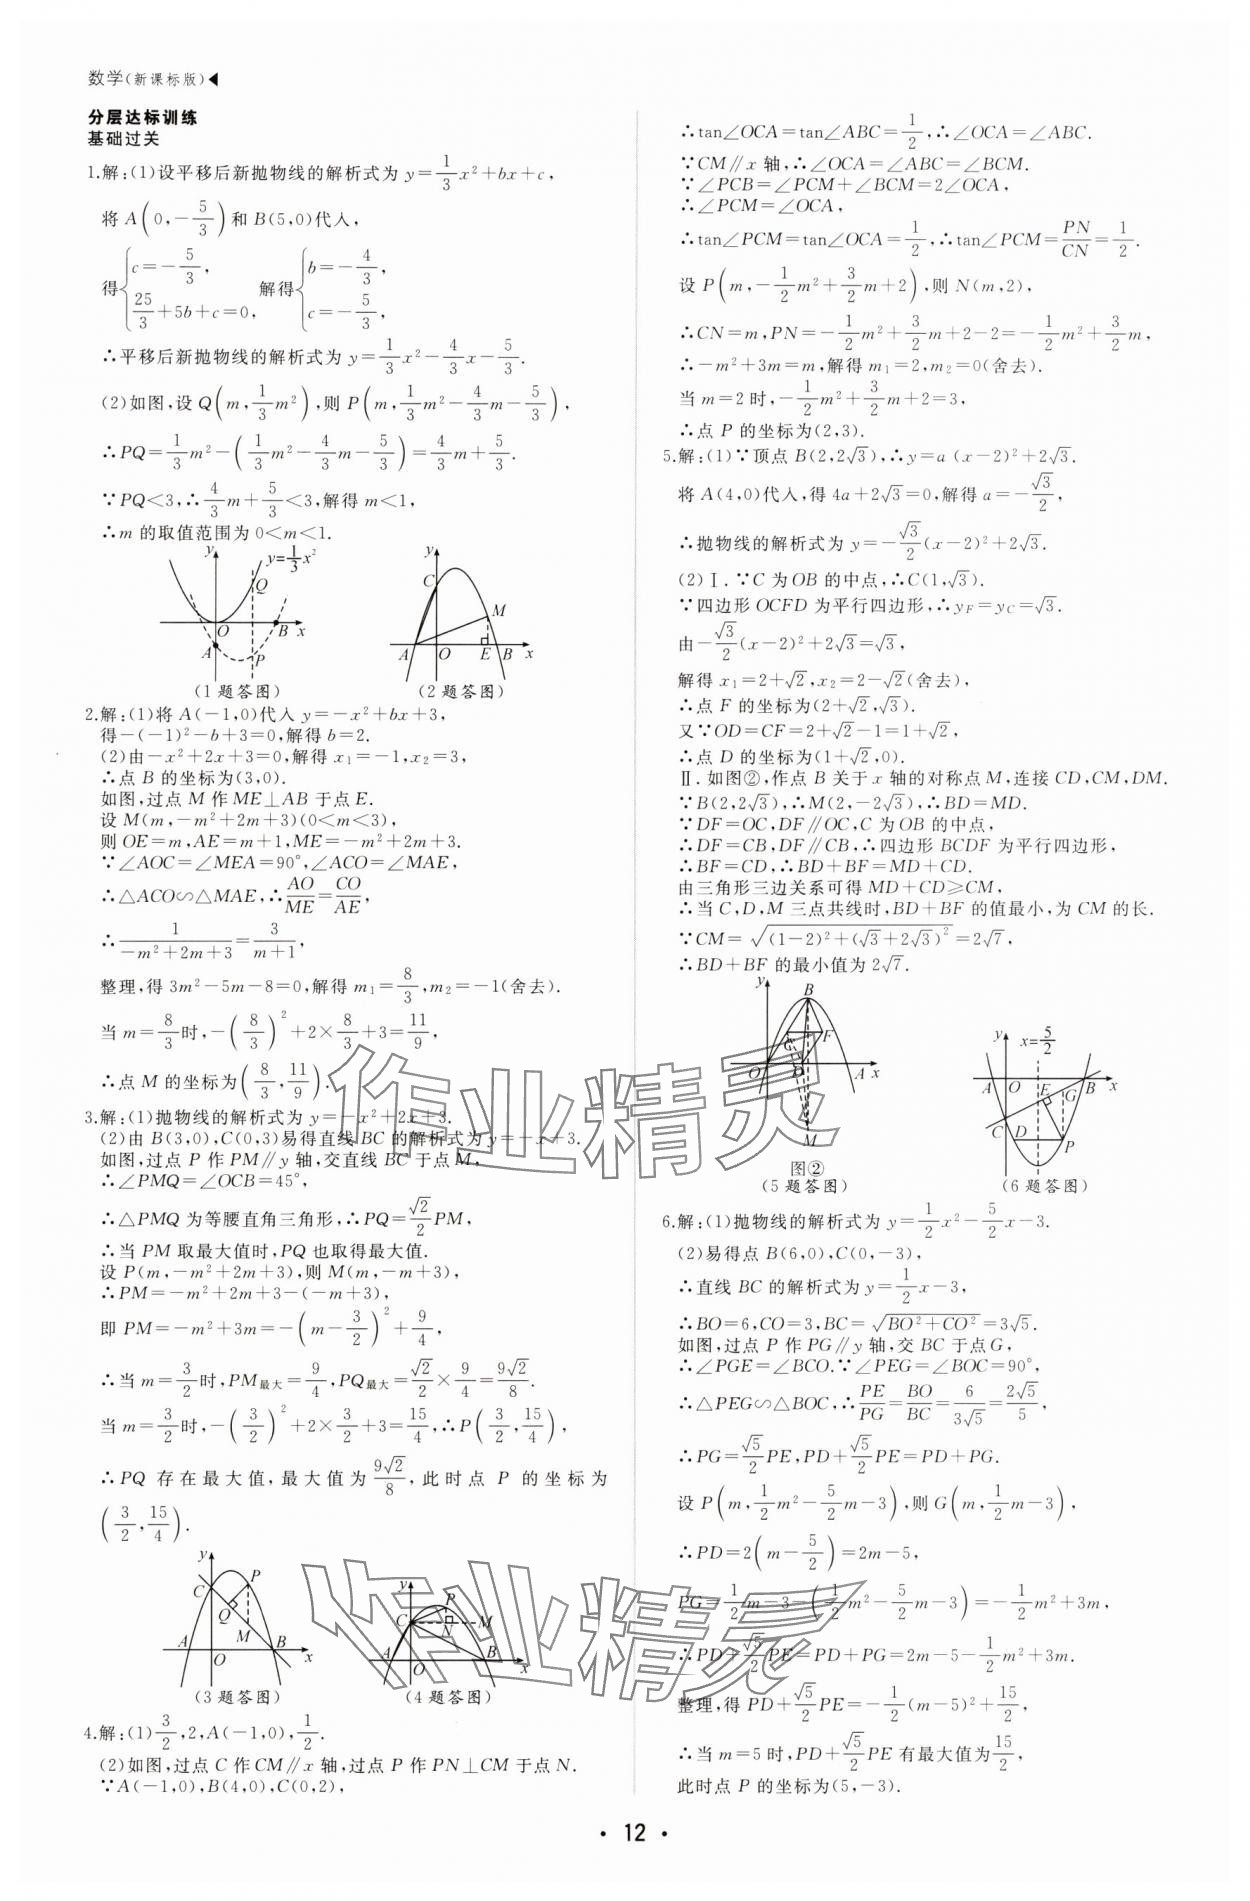 数学(新课标版)◀
分层达标训练
基础过关
1.解:(1)设平移后新抛物线的解析式为 y=1/3x²+bx+c,
将 A(0,-5/3)和 B(5,0)代入,
得{c=-5/3, 25/3+5b+c=0, 解得{b=-4/3, c=-5/3,
∴平移后新抛物线的解析式为 y=1/3x²-4/3x-5/3.
(2)如图,设 Q(m,1/3m²),则 P(m,1/3m²-4/3m-5/3),
∴PQ=1/3m²-(1/3m²-4/3m-5/3)=4/3m+5/3.
∵PQ<3,∴4/3m+5/3<3,解得 m<1,
∴m 的取值范围为 0<m<1.
y y=1/3x² Q O B x A P
(1 题答图)
y C M A O E B x
(2 题答图)
2.解:(1)将 A(-1,0)代入 y=-x²+bx+3,
得-(-1)²-b+3=0,解得 b=2.
(2)由-x²+2x+3=0,解得 x₁=-1,x₂=3,
∴点 B 的坐标为(3,0).
如图,过点 M 作 ME⊥AB 于点 E.
设 M(m,-m²+2m+3)(0<m<3),
则 OE=m,AE=m+1,ME=-m²+2m+3.
∵∠AOC=∠MEA=90°,∠ACO=∠MAE,
∴△ACO∽△MAE,∴AO/ME=CO/AE,
∴1/(-m²+2m+3)=3/(m+1),
整理,得 3m²-5m-8=0,解得 m₁=8/3,m₂=-1(舍去).
当 m=8/3时,-(8/3)²+2×8/3+3=11/9,
∴点 M 的坐标为(8/3,11/9).
3.解:(1)抛物线的解析式为 y=-x²+2x+3.
(2)由 B(3,0),C(0,3)易得直线 BC 的解析式为 y=-x+3.
如图,过点 P 作 PM∥y 轴,交直线 BC 于点 M,
∴∠PMQ=∠OCB=45°,
∴△PMQ 为等腰直角三角形,∴PQ=√2/2PM,
∴当 PM 取最大值时,PQ 也取得最大值.
设 P(m,-m²+2m+3),则 M(m,-m+3),
∴PM=-m²+2m+3-(-m+3),
即 PM=-m²+3m=-(m-3/2)²+9/4,
∴当 m=3/2时,PM最大=9/4,PQ最大=√2/2×9/4=9√2/8.
当 m=3/2时,-(3/2)²+2×3/2+3=15/4,∴P(3/2,15/4),
∴PQ 存在最大值,最大值为9√2/8,此时点 P 的坐标为
(3/2,15/4).
y C P Q M A O B x
(3 题答图)
y C P N M A O B x
(4 题答图)
4.解:(1)3/2,2,A(-1,0),1/2.
(2)如图,过点 C 作 CM∥x 轴,过点 P 作 PN⊥CM 于点 N.
∵A(-1,0),B(4,0),C(0,2),
∴tan∠OCA=tan∠ABC=1/2,∴∠OCA=∠ABC.
∵CM∥x 轴,∴∠OCA=∠ABC=∠BCM.
∵∠PCB=∠PCM+∠BCM=2∠OCA,
∴∠PCM=∠OCA,
∴tan∠PCM=tan∠OCA=1/2,∴tan∠PCM=PN/CN=1/2.
设 P(m,-1/2m²+3/2m+2),则 N(m,2),
∴CN=m,PN=-1/2m²+3/2m+2-2=-1/2m²+3/2m,
∴-m²+3m=m,解得 m₁=2,m₂=0(舍去).
当 m=2 时,-1/2m²+3/2m+2=3,
∴点 P 的坐标为(2,3).
5.解:(1)∵顶点 B(2,2√3),∴y=a (x-2)²+2√3.
将 A(4,0)代入,得 4a+2√3=0,解得 a=-√3/2,
∴抛物线的解析式为 y=-√3/2(x-2)²+2√3.
(2)Ⅰ.∵C 为 OB 的中点,∴C(1,√3).
∵四边形 OCFD 为平行四边形,∴y_F=y_C=√3.
由-√3/2(x-2)²+2√3=√3,
解得 x₁=2+√2,x₂=2-√2(舍去),
∴点 F 的坐标为(2+√2,√3).
又∵OD=CF=2+√2-1=1+√2,
∴点 D 的坐标为(1+√2,0).
Ⅱ.如图②,作点 B 关于 x 轴的对称点 M,连接 CD,CM,DM.
∵B(2,2√3),∴M(2,-2√3),∴BD=MD.
∵DF=OC,DF∥OC,C 为 OB 的中点,
∴DF=CB,DF∥CB,∴四边形 BCDF 为平行四边形,
∴BF=CD,∴BD+BF=MD+CD.
由三角形三边关系可得 MD+CD≥CM,
∴当 C,D,M 三点共线时,BD+BF 的值最小,为 CM 的长.
∵CM=√((1-2)²+(√3+2√3)²)=2√7,
∴BD+BF 的最小值为 2√7.
y B C F O D A x M
图②
(5 题答图)
y x=5/2 A O E G B x C D P
(6 题答图)
6.解:(1)抛物线的解析式为 y=1/2x²-5/2x-3.
(2)易得点 B(6,0),C(0,-3),
∴直线 BC 的解析式为 y=1/2x-3,
∴BO=6,CO=3,BC=√(BO²+CO²)=3√5.
如图,过点 P 作 PG∥y 轴,交 BC 于点 G,
∴∠PGE=∠BCO.∵∠PEG=∠BOC=90°,
∴△PEG∽△BOC,∴PE/PG=BO/BC=6/(3√5)=2√5/5,
∴PG=√5/2PE,PD+√5/2PE=PD+PG.
设 P(m,1/2m²-5/2m-3),则 G(m,1/2m-3),
∴PD=2(m-5/2)=2m-5,
PG=1/2m-3-(1/2m²-5/2m-3)=-1/2m²+3m,
∴PD+√5/2PE=PD+PG=2m-5-1/2m²+3m.
整理,得 PD+√5/2PE=-1/2(m-5)²+15/2,
∴当 m=5 时,PD+√5/2PE 有最大值为15/2,
此时点 P 的坐标为(5,-3).
作业精灵
作业精灵
· 12 ·